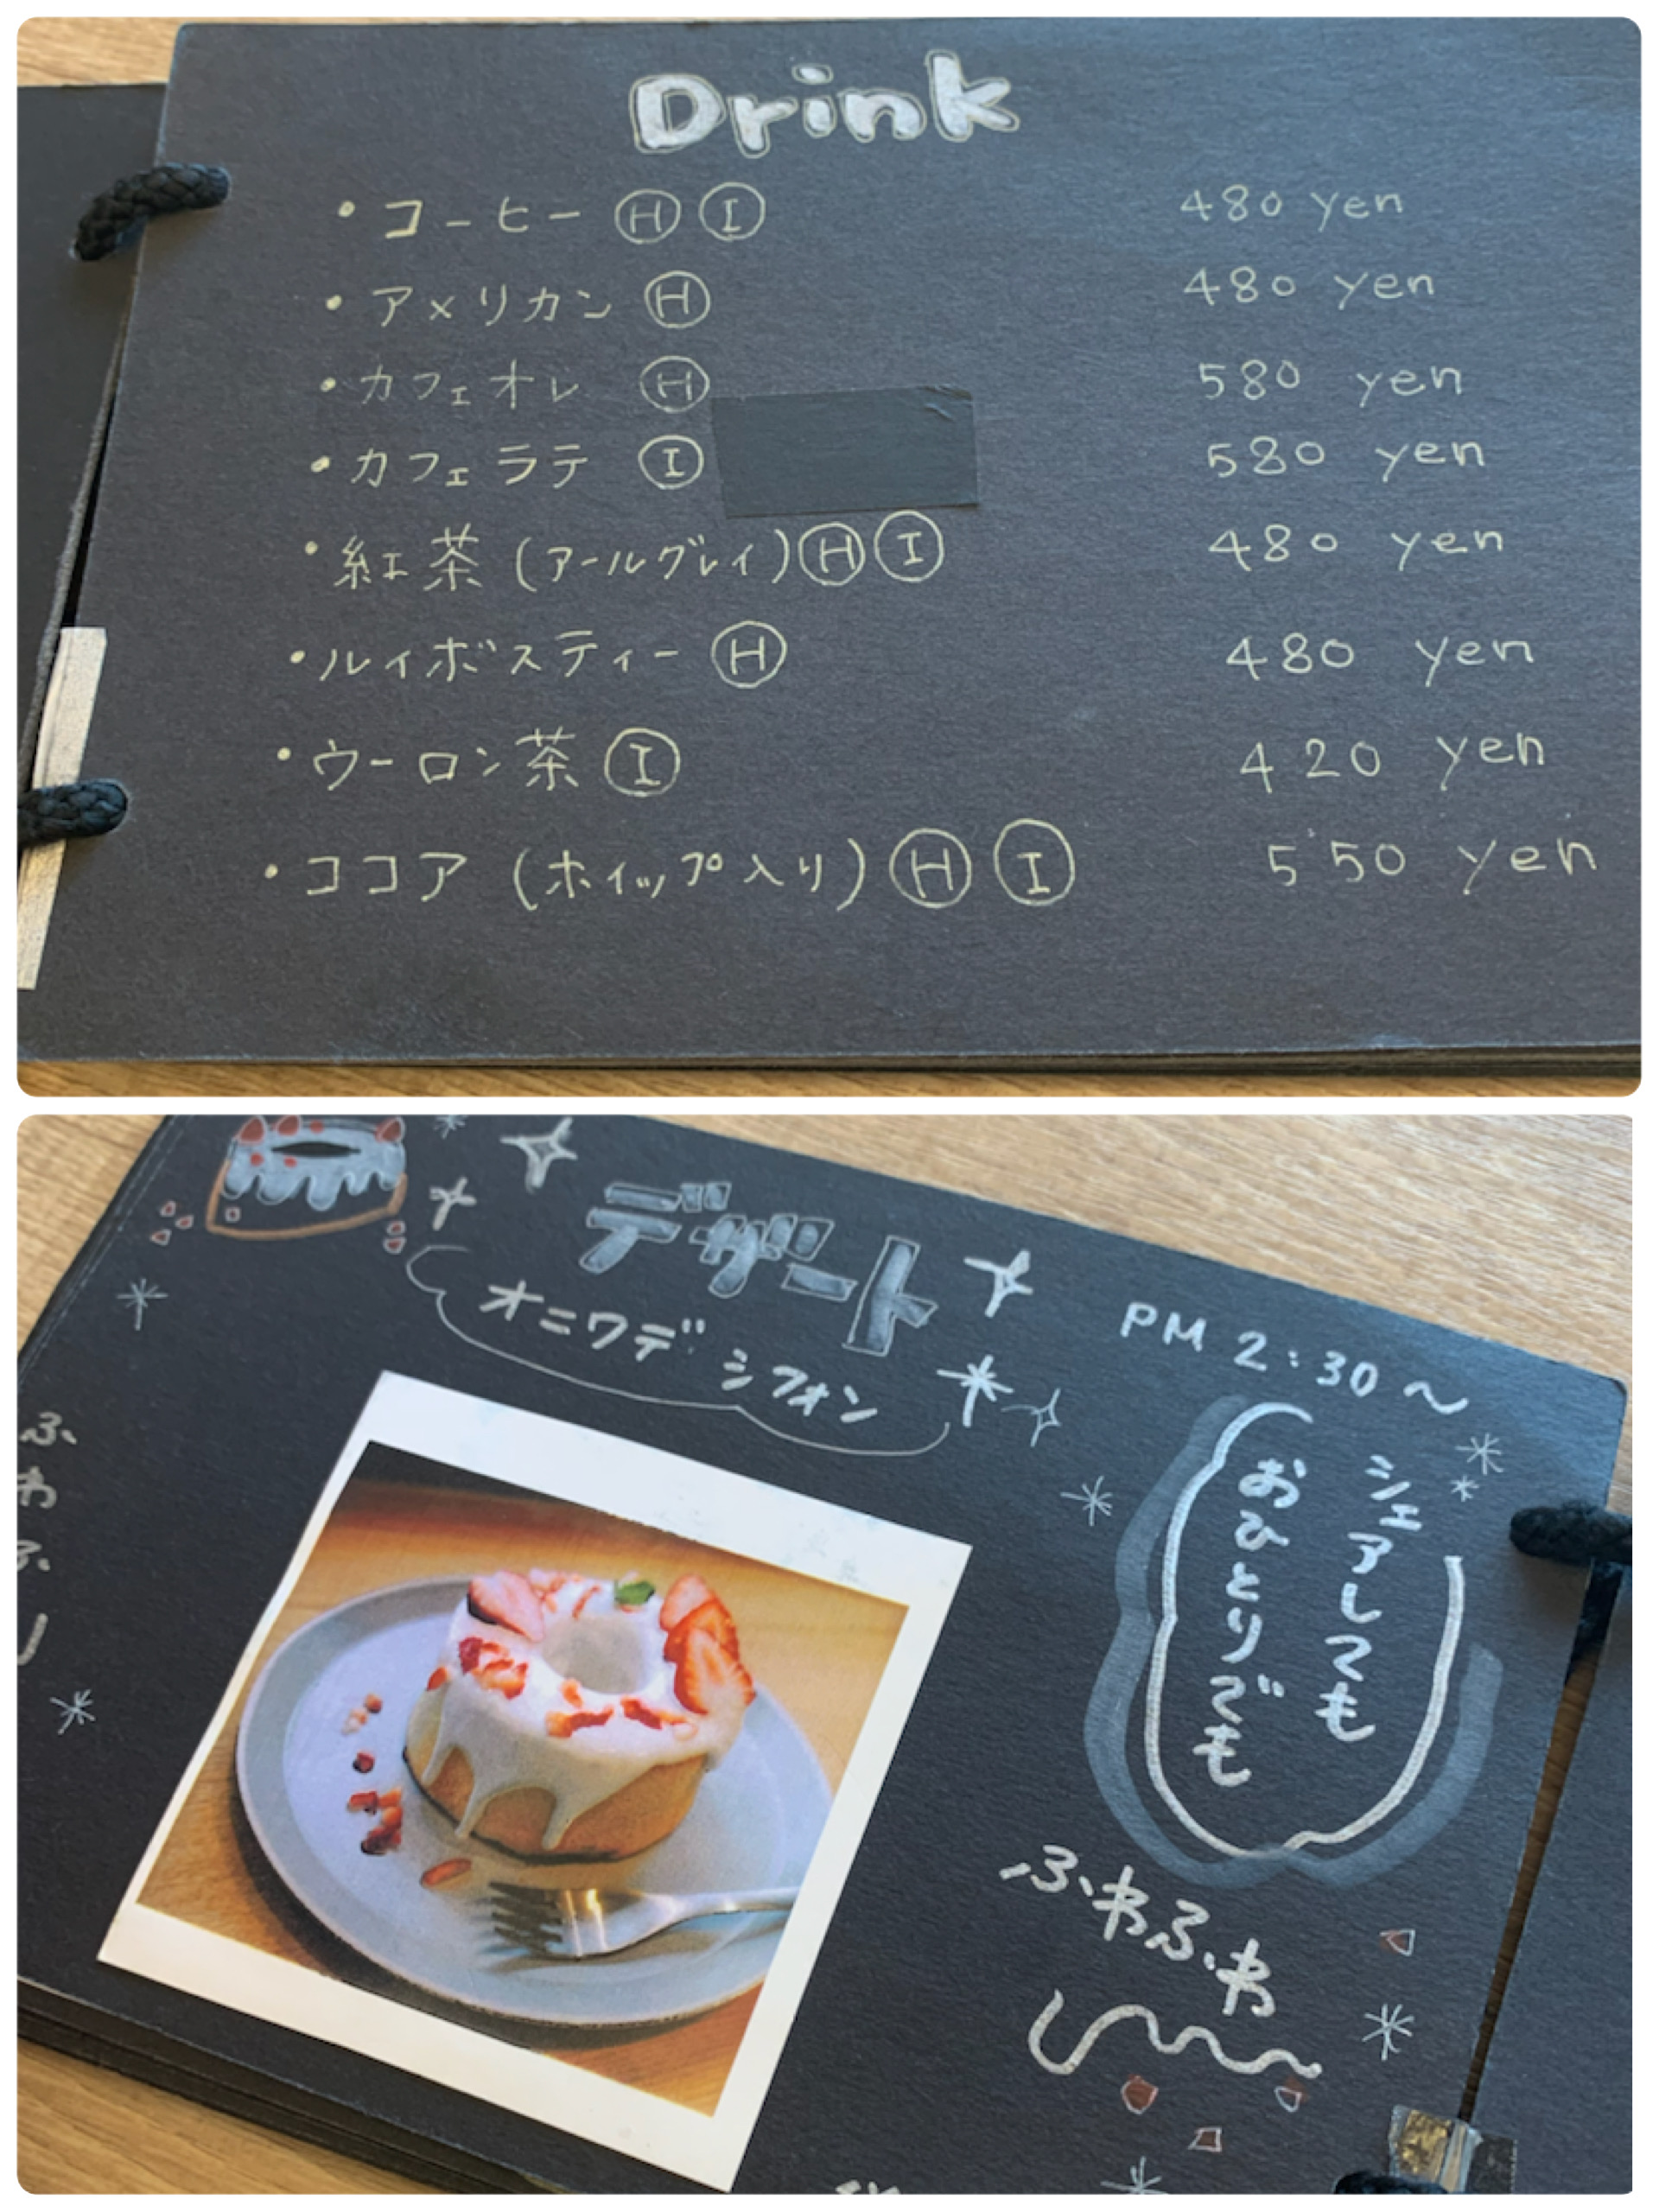 Drink
・コーヒー Ⓗ Ⓘ 480 yen
・アメリカン Ⓗ 480 yen
・カフェオレ Ⓗ 580 yen
・カフェラテ Ⓘ 580 yen
・紅茶(アールグレイ)Ⓗ Ⓘ 480 yen
・ルイボスティー Ⓗ 480 yen
・ウーロン茶 Ⓘ 420 yen
・ココア(ホイップ入り)Ⓗ Ⓘ 550 yen
デザート
オニワデシフォン
PM 2:30〜
シェアしても
おひとりでも
ふわふわ
ふわふ